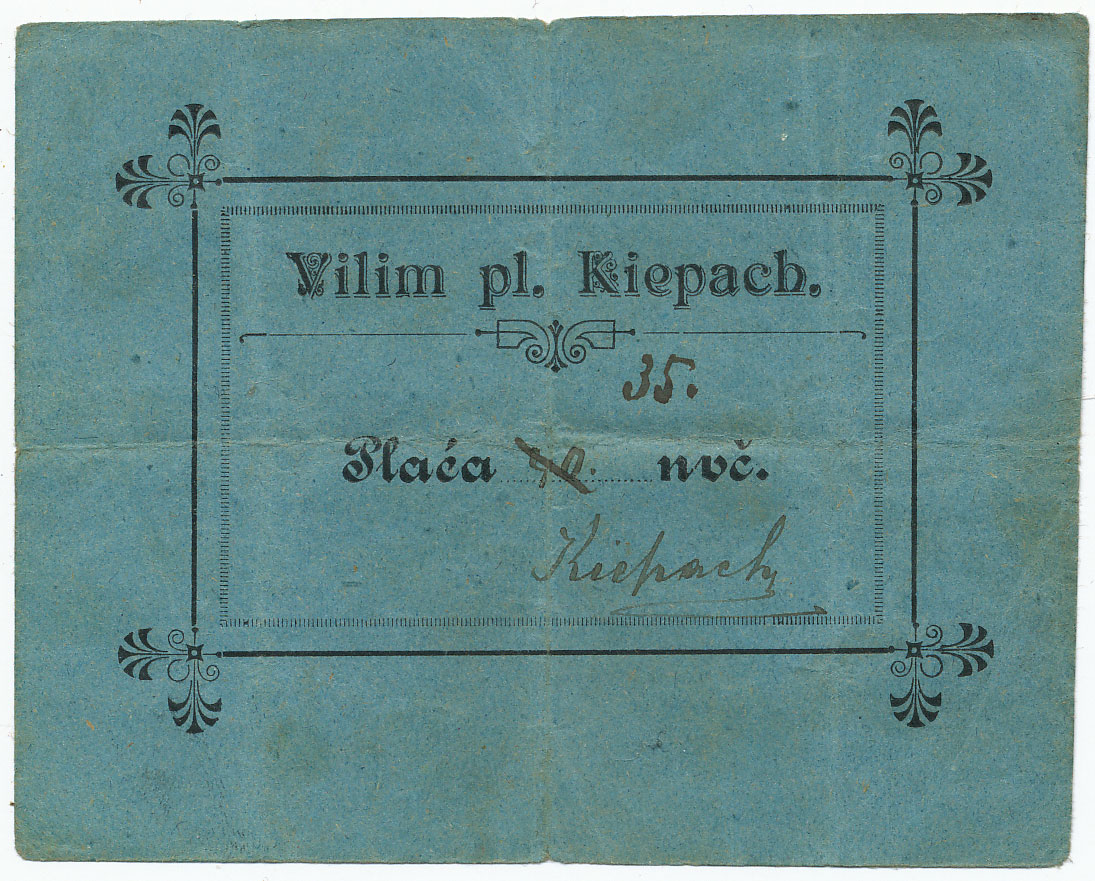 Vilim pl. Kiepach.
35.
Plaća nvč.
Kiepach